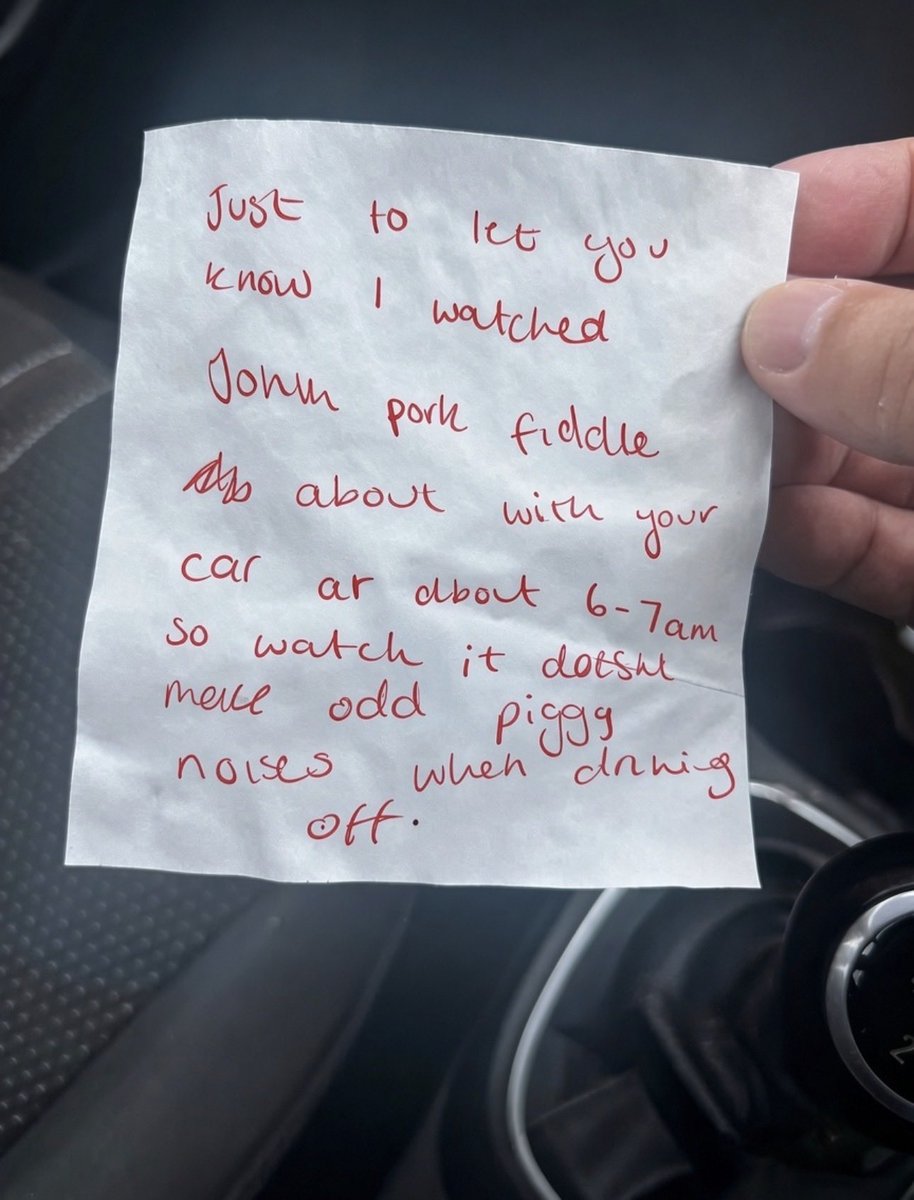 Just to let you
know I watched
John pork fiddle
about with your
car at about 6-7am
so watch it doesnt
make odd piggy
noises when driving
off.